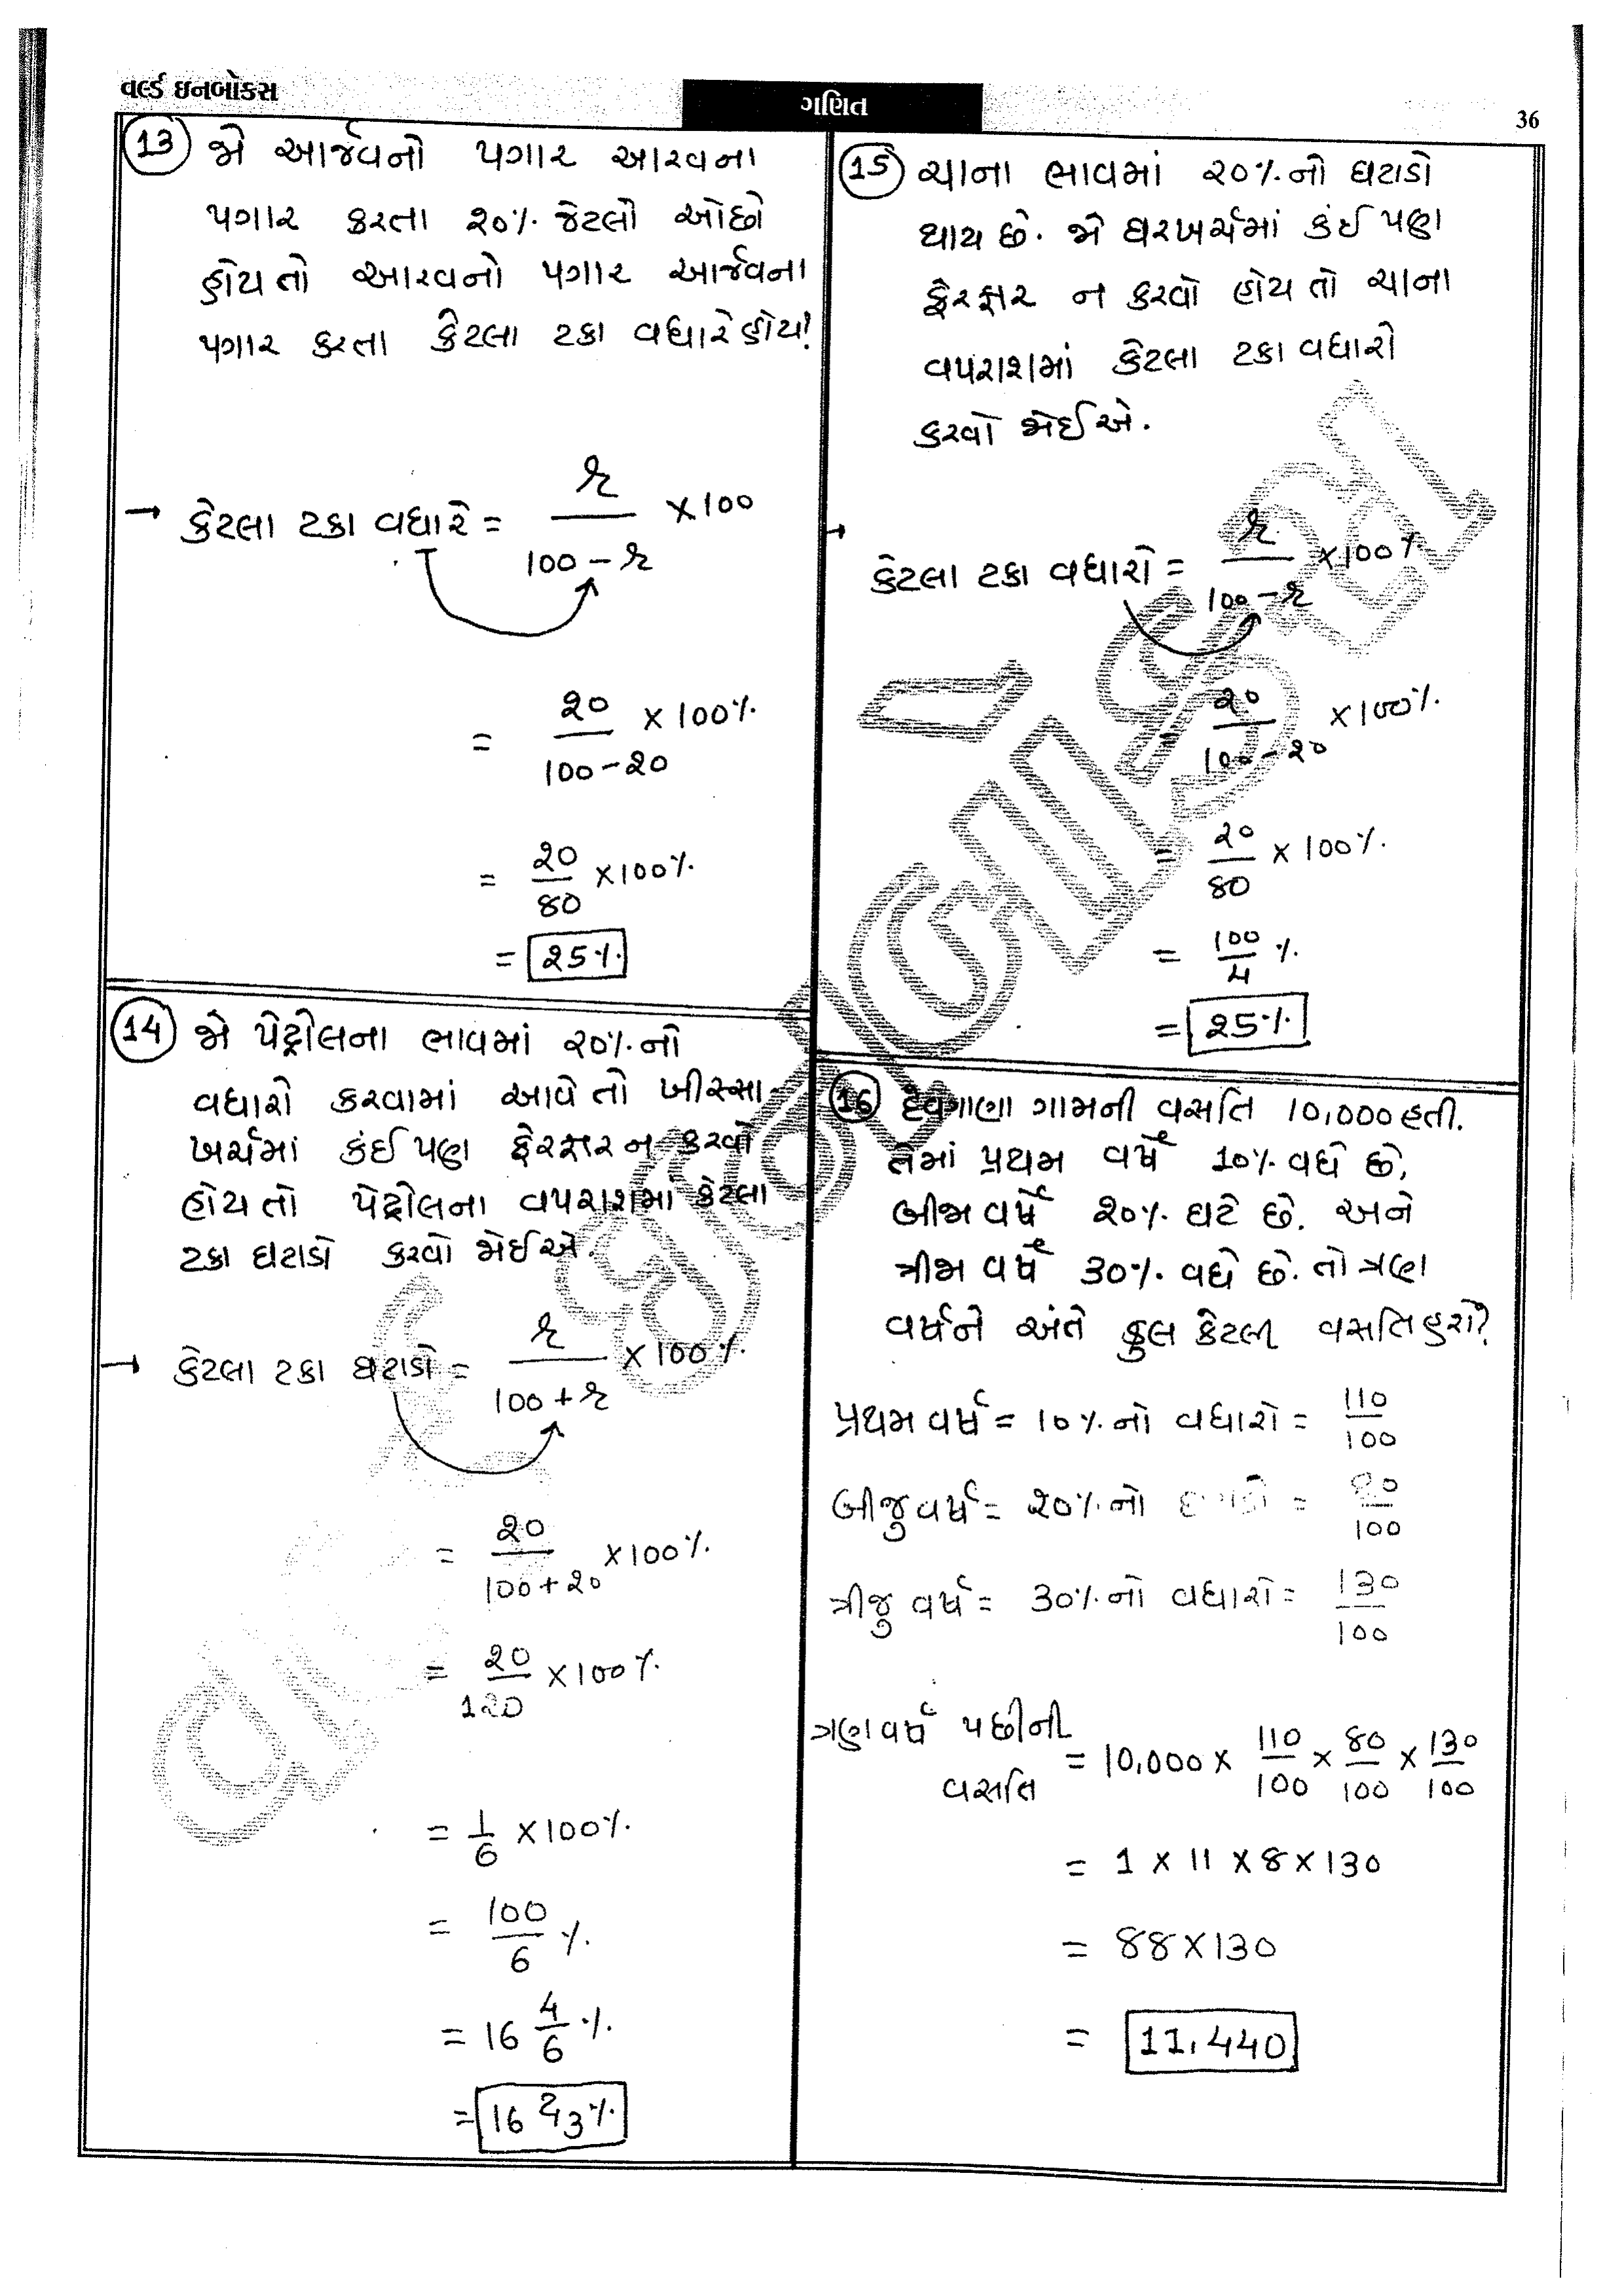 વર્લ્ડ ઇનબોક્સ
ગણિત
36
13 જો આર્જવનો પગાર આરવના
પગાર કરતા ૨૦% જેટલો ઓછો
હોય તો આરવનો પગાર આર્જવના
પગાર કરતા કેટલા ટકા વધારે હોય?
→ કેટલા ટકા વધારે = ર / 100 - ર × 100
= ૨0 / 100 - ૨0 × 100%
= ૨0 / 80 × 100%
= ૨5%
14 જો પેટ્રોલના ભાવમાં ૨૦% નો
વધારો કરવામાં આવે તો ખીસ્સા
ખર્ચમાં કંઈ પણ ફેરફાર ન કરવો
હોય તો પેટ્રોલના વપરાશમાં કેટલા
ટકા ઘટાડો કરવો જોઈએ.
→ કેટલા ટકા ઘટાડો = ર / 100 + ર × 100%
= ૨0 / 100 + ૨0 × 100%
= ૨0 / 1૨0 × 100%
= 1/6 × 100%
= 100 / 6 %
= 16 4/6 %
= 16 ૨/3 %
15 ચાના ભાવમાં ૨૦% નો ઘટાડો
થાય છે. જો ઘરખર્ચમાં કંઈ પણ
ફેરફાર ન કરવો હોય તો ચાના
વપરાશમાં કેટલા ટકા વધારો
કરવો જોઈએ.
→ કેટલા ટકા વધારો = ર / 100 - ર × 100%
= ૨0 / 100 - ૨0 × 100%
= ૨0 / 80 × 100%
= 100 / 4 %
= ૨5%
16 દેવગાણા ગામની વસતિ 10,000 હતી.
તેમાં પ્રથમ વર્ષે 10% વધે છે,
બીજા વર્ષે ૨0% ઘટે છે. અને
ત્રીજા વર્ષે 30% વધે છે. તો ત્રણ
વર્ષને અંતે કુલ કેટલી વસતિ હશે?
પ્રથમ વર્ષ = 10% નો વધારો = 110 / 100
બીજુ વર્ષ = ૨0% નો ઘટાડો = 80 / 100
ત્રીજુ વર્ષ = 30% નો વધારો = 130 / 100
ત્રણ વર્ષ પછીની
વસતિ = 10,000 × 110/100 × 80/100 × 130/100
= 1 × 11 × 8 × 130
= 88 × 130
= 11,440